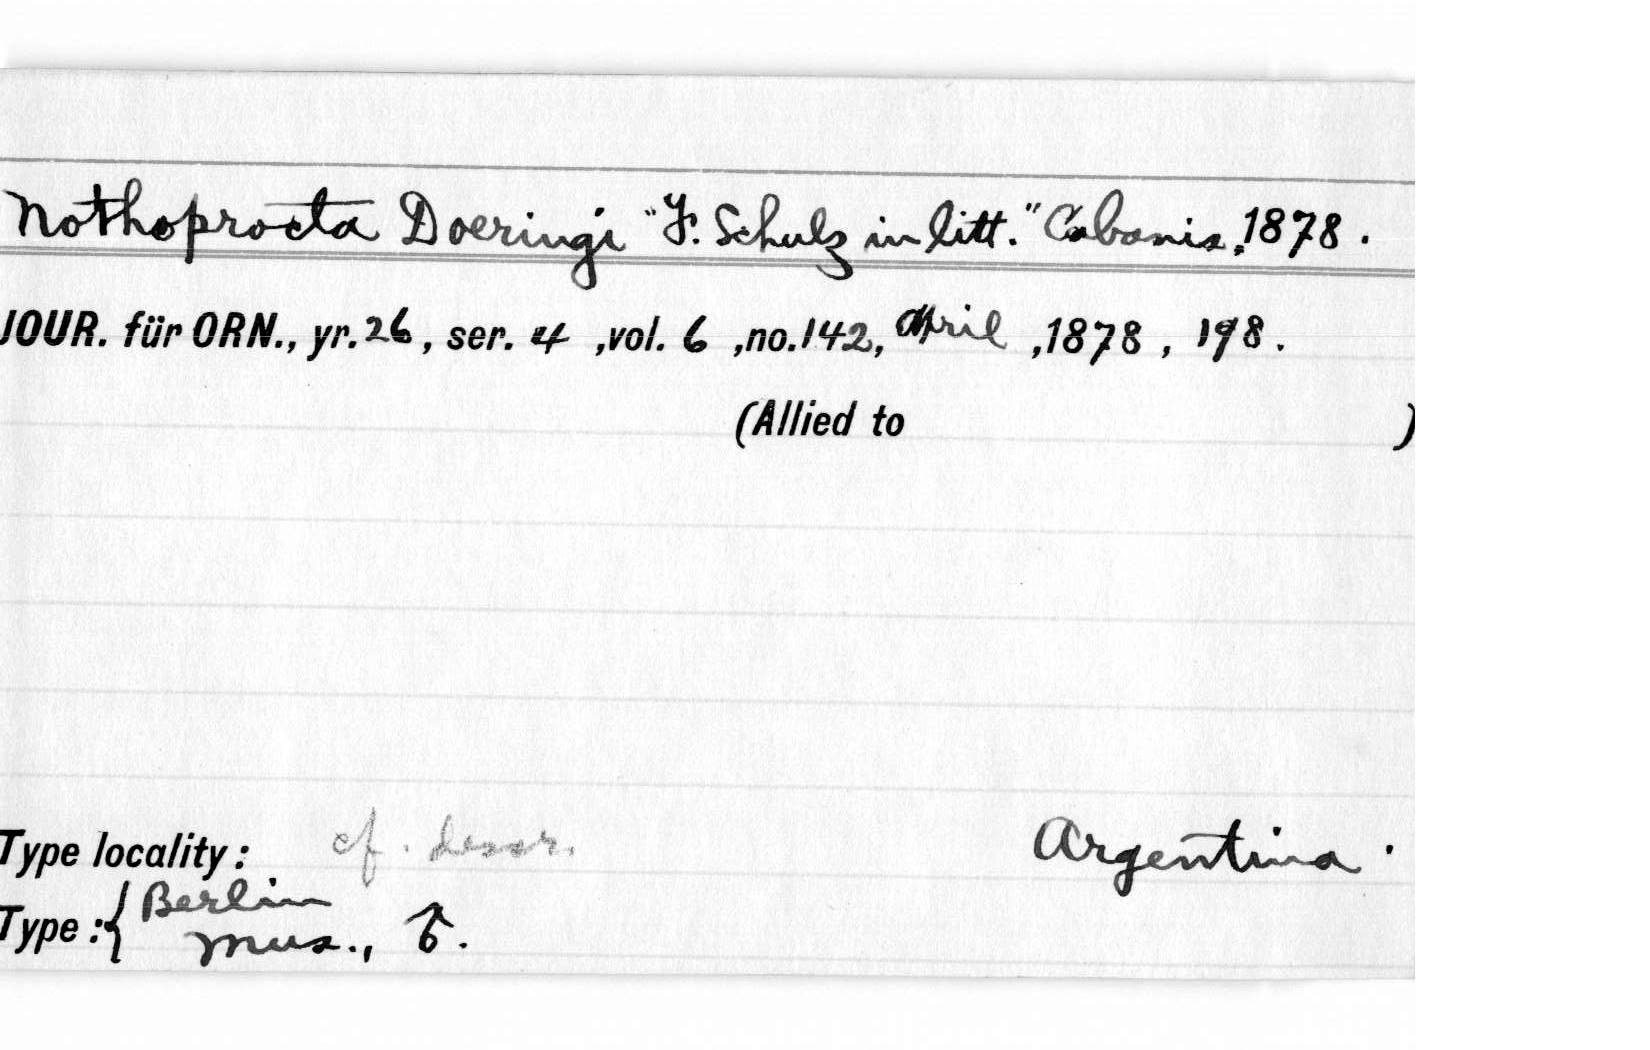 Nothoprocta Doeringi "F. Schulz in litt." Cabanis, 1878.
JOUR. für ORN., yr. 26, ser. 4, vol. 6, no. 142, April, 1878, 198.
(Allied to )
Type locality: cf. descr. Argentina.
Type: { Berlin
Mus., ♂.